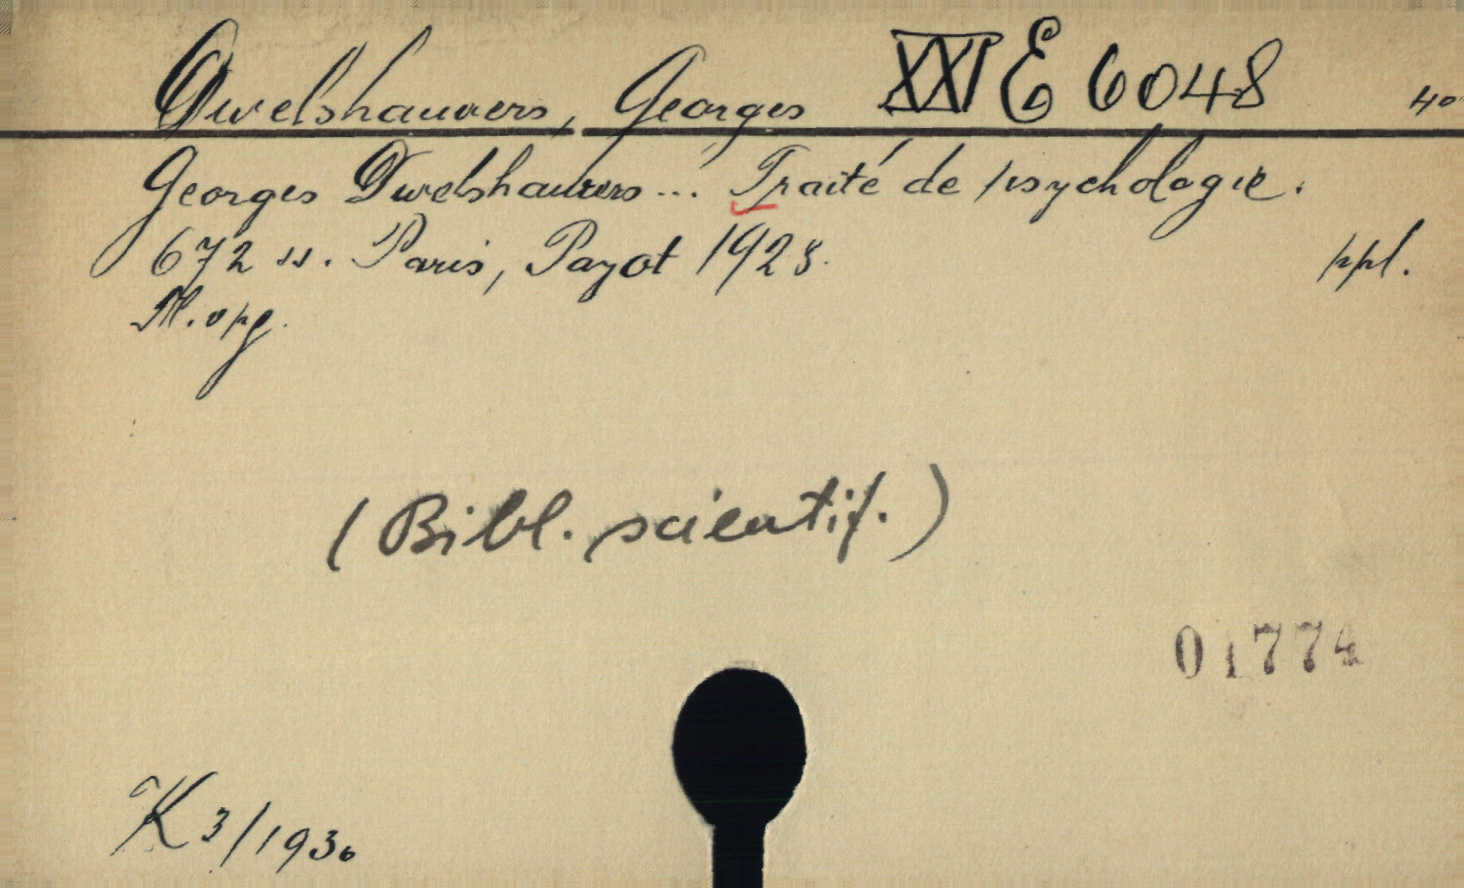 Dwelshauvers, Georges XXI E 6048 40
Georges Dwelshauvers ... Traité de psychologie.
672 ss. Paris, Payot 1928. ppl.
Pł. opr.
(Bibl. scientif.)
01774
K 3/1930